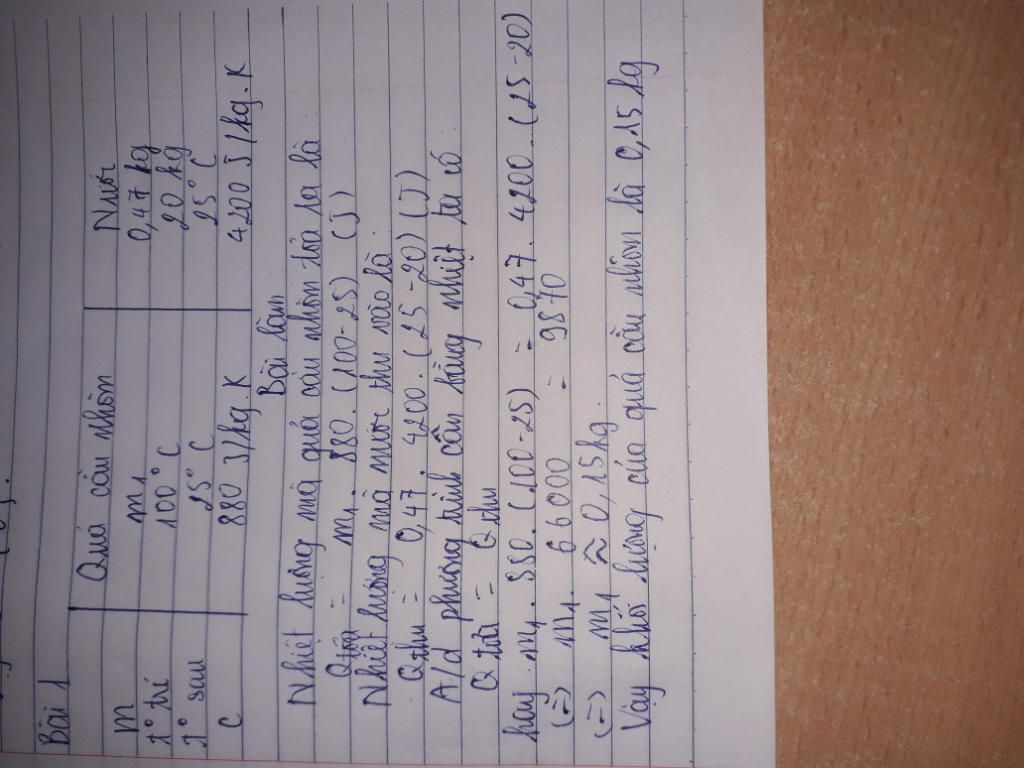 Bài 1
Quả cần nhôm Nước
m m1 0,47 kg
t° trc 100°C 20 kg
t° sau 25°C 25°C
C 880 J/kg.K 4200 J/kg.K
Bài làm
Nhiệt lượng mà quả cần nhôm tỏa ra là
Qtỏa = m1. 880. (100-25) (J)
Nhiệt lượng mà nước thu vào là
Qthu = 0,47. 4200. (25-20) (J)
A/d phương trình cần bằng nhiệt ta có
Q tỏa = Q thu
hay m1. 880. (100-25) = 0,47. 4200. (25-20)
(=) m1. 66000 = 9870
(=) m1 ≈ 0,15kg
Vậy khối lượng của quả cần nhôm là 0,15 kg